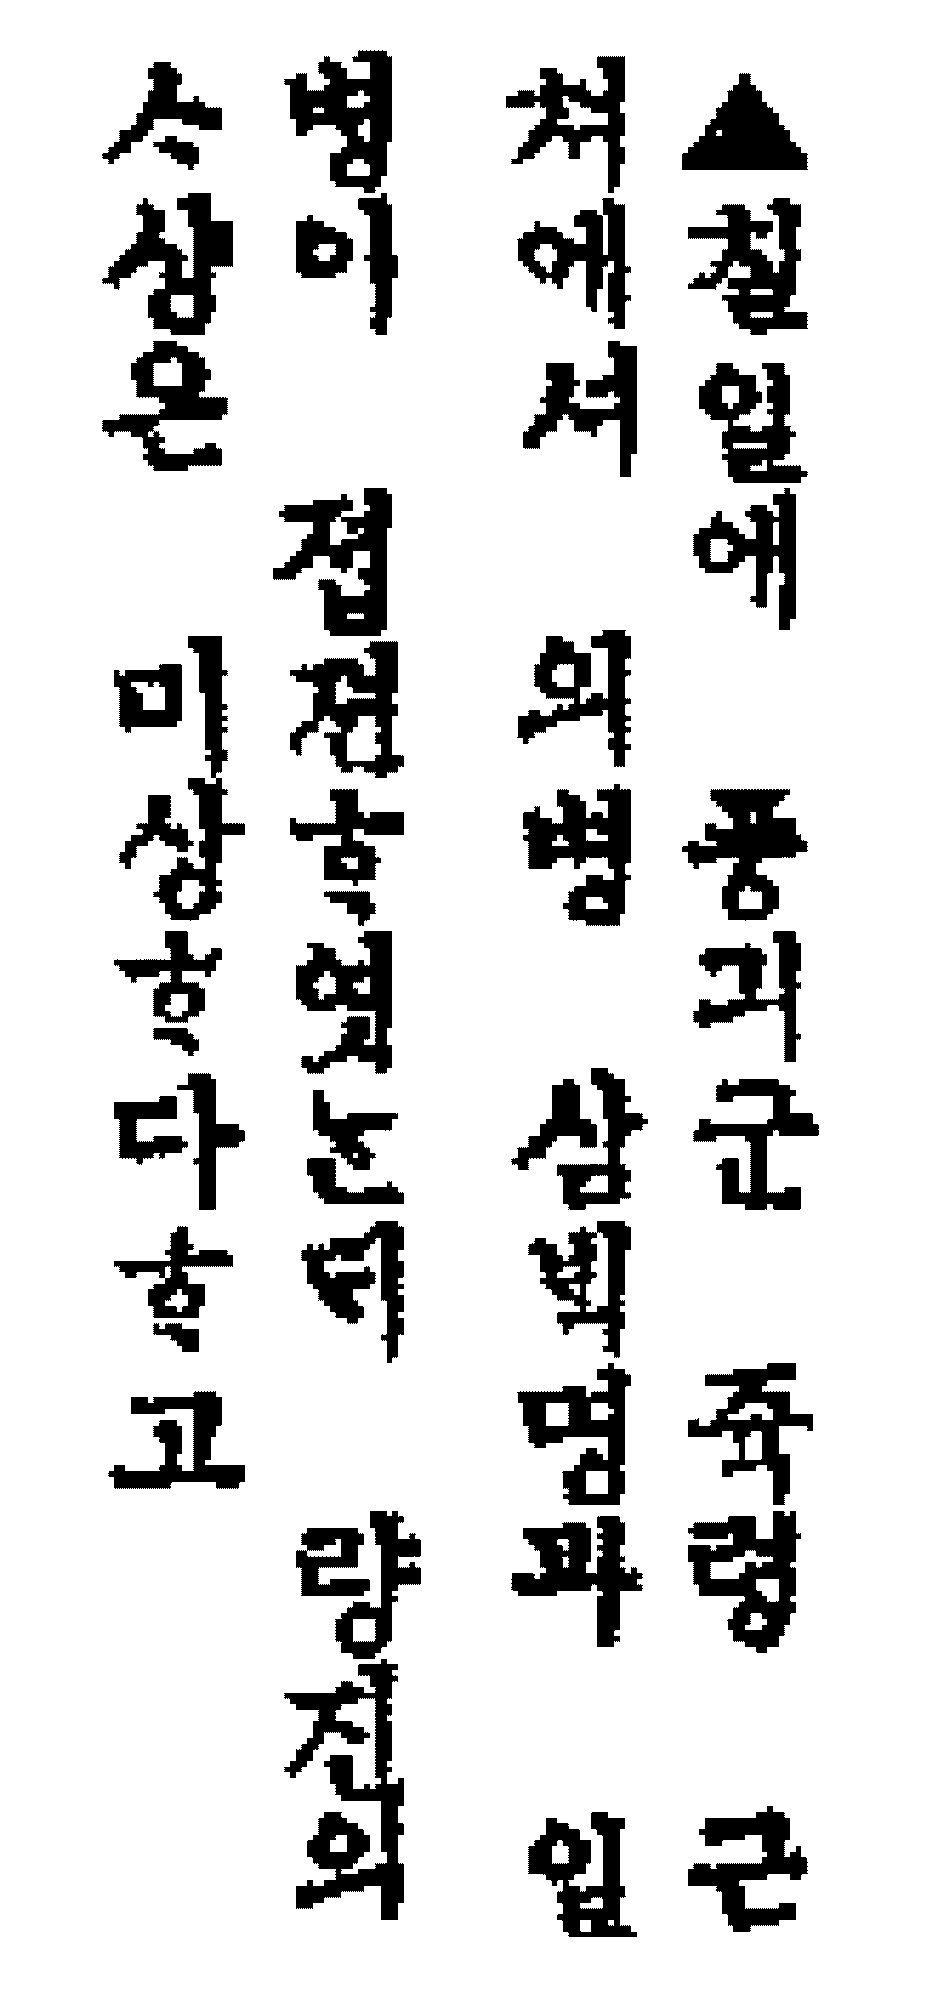 ▲칠일에 풍긔군 쥭령 근
쳐에셔 의병 삼ᄇᆡᆨ명과 일
병이 졉젼ᄒᆞ엿ᄂᆞᆫᄃᆡ 량진의
ᄉᆞ상은 미상ᄒᆞ다ᄒᆞ고